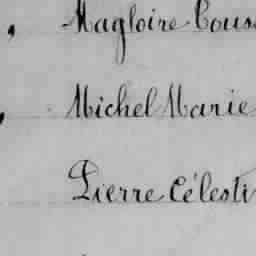 Magloire Cous
Michel Marie
Pierre Célesti